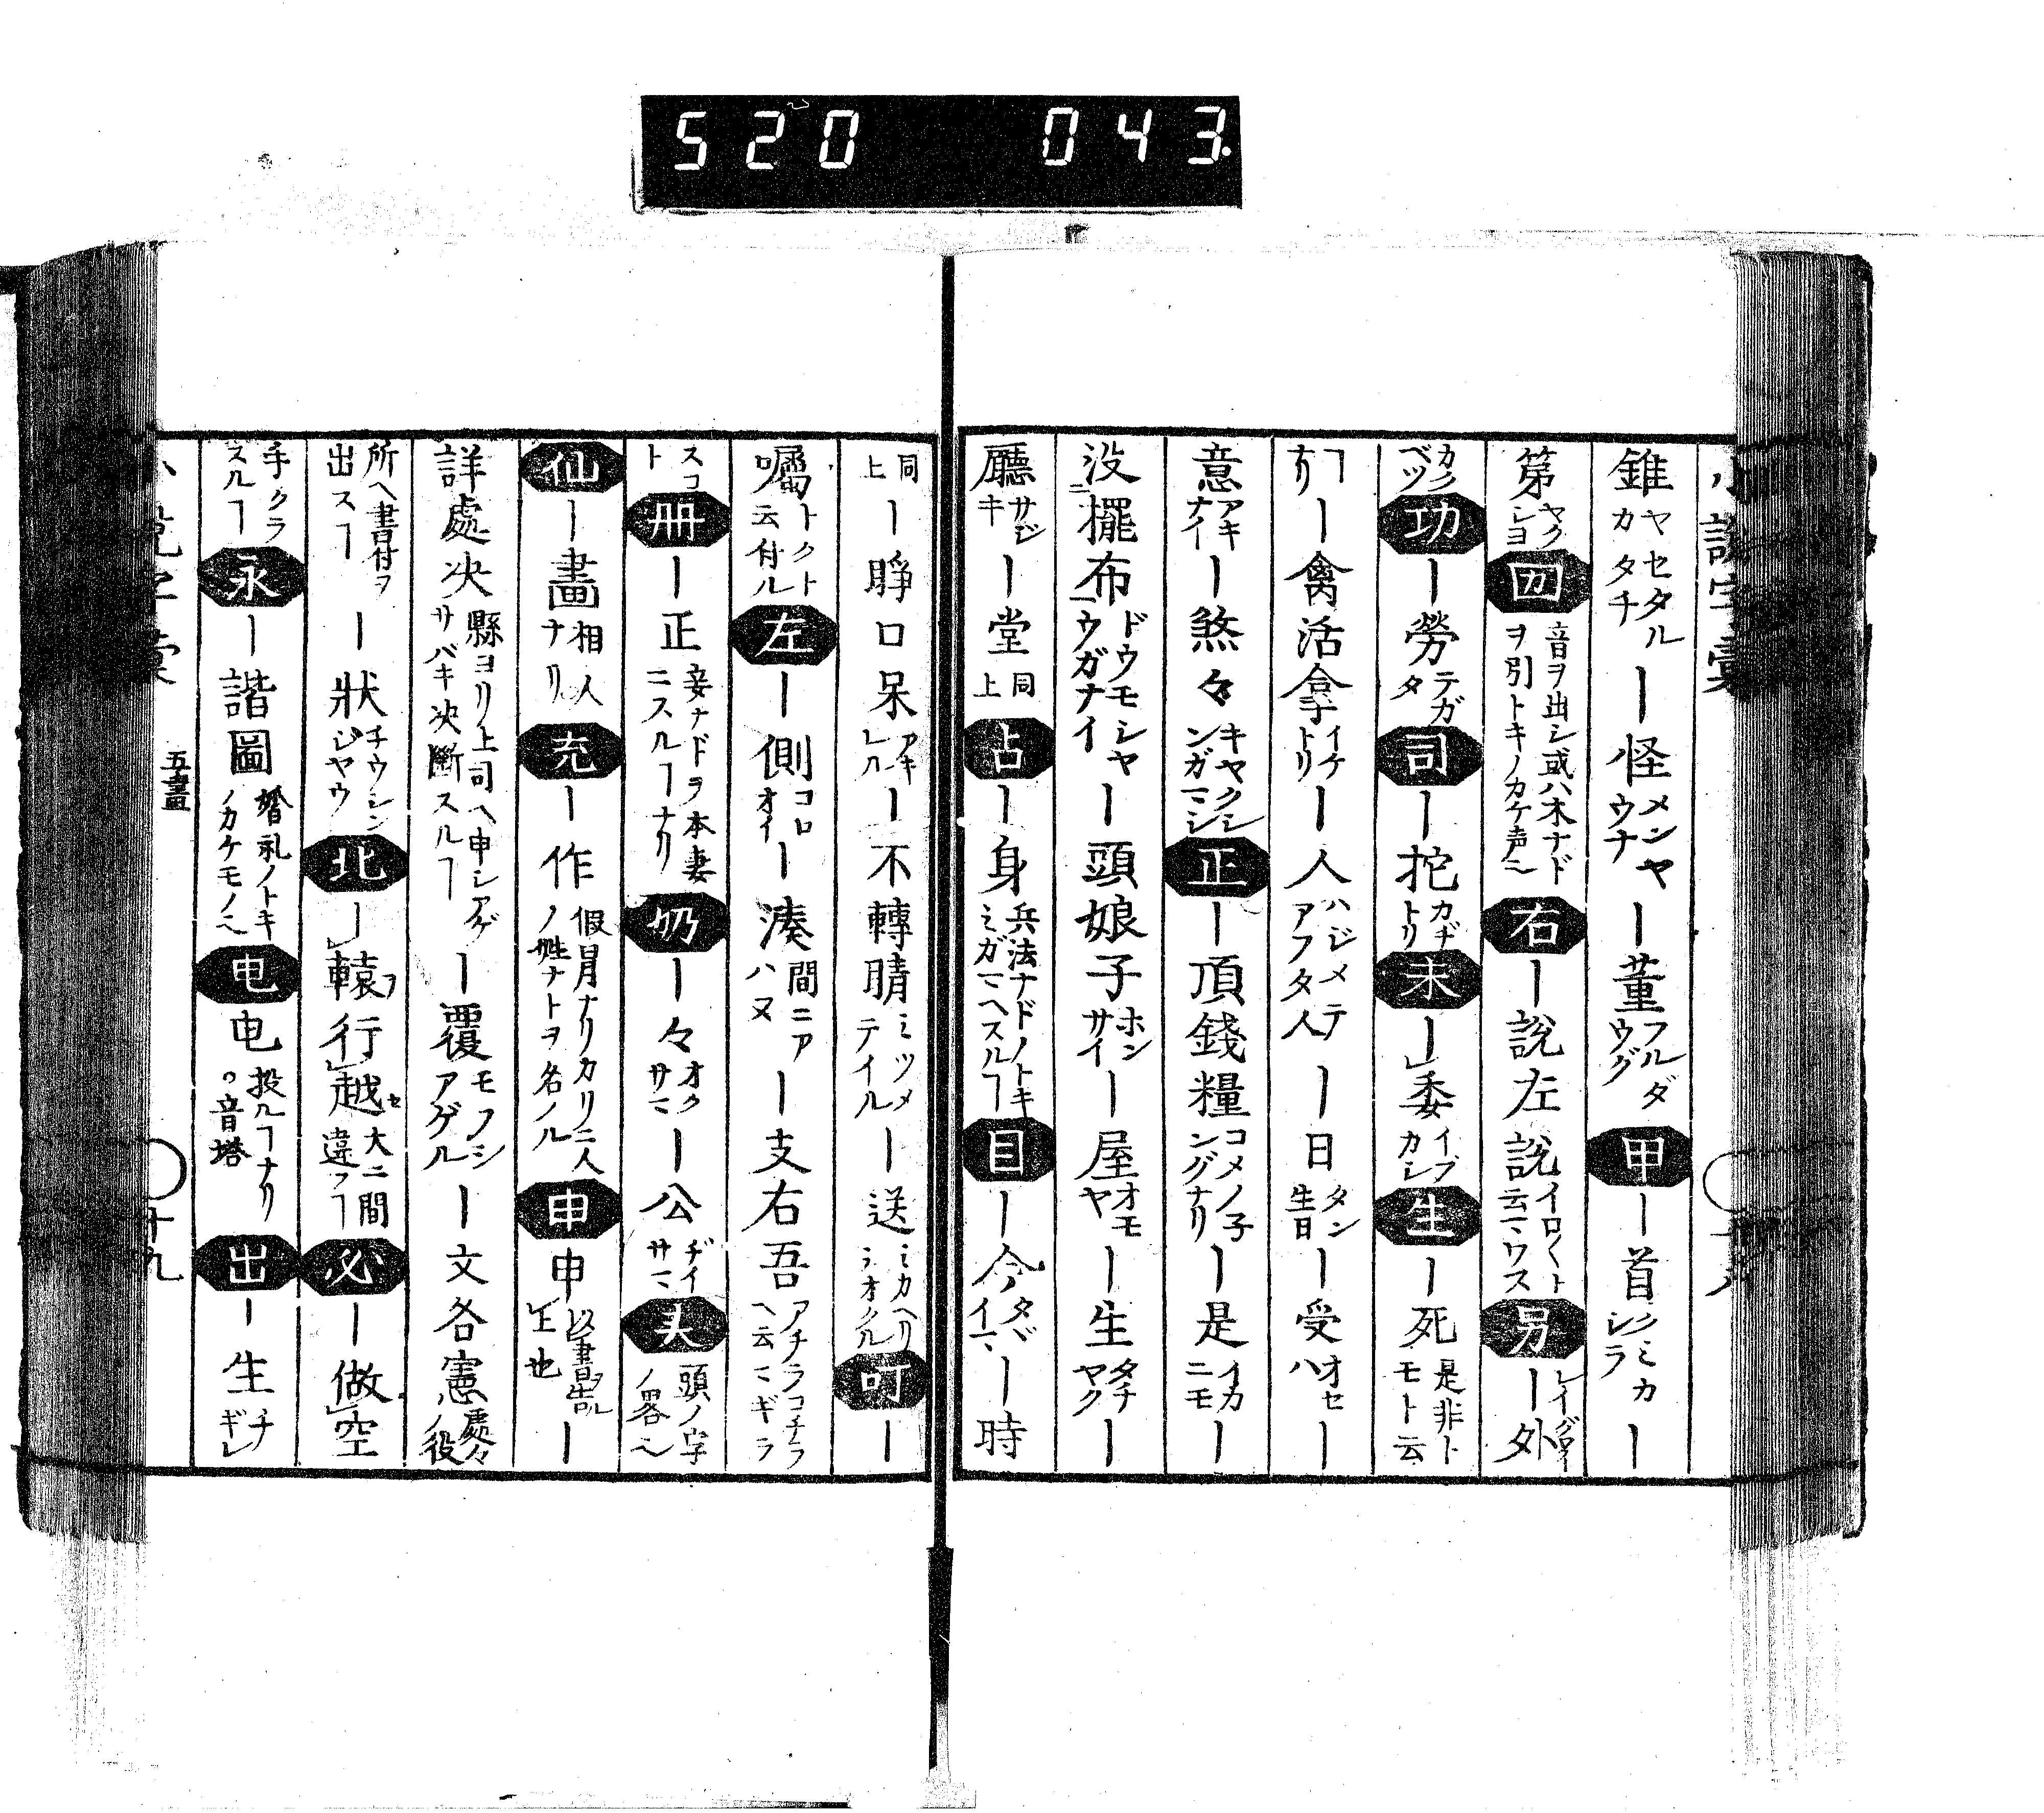 520 043
小説字彙
錐 ヤセタルカタチ ー怪 メンヤウナ ー董 フルダウグ 甲 ー首 シノミカシラ ー
第 ヤクシヨ 㘞 音ヲ出シ或ハ木ナドヲ引トキノカケ声也 右 ー說左說 イロ〱ト云マワス 另 ー外
カクベツ 功 ー勞 テガタ 司 ー拕 カヂトリ 未 ー委 イブカシ 生 ー死 是非トモト云
ヿナリ ー禽活拿 イケドリ ー人 ハジメテアフタ人 ー日 タン生日 ー受 オセハ ー
意 アキナイ ー煞々 キヤクシンガマシ 正 ー頂錢糧 コメノ子ングナリ ー是 イカニモ ー
没擺布 ドウモシヤウガナイ ー頭娘子 ホンサイ ー屋 オモヤ ー生 タチヤク ー
廳 サジキ ー堂 同上 占 ー身 兵法ナドノトキミガマヘスルヿ 目 ー今 タヾイマ ー時
同上 ー睜口呆 アキレル ー不轉睛 ミツメテイル ー送 ミカヘリミオクル 叮 ー
囑 トクト云付ル 左 ー側 コロオイ ー湊 間ニアハヌ ー支右吾 アチラコチラヘ云マギラ
スコト 冊 ー正 妾ナドヲ本妻ニスルヿナリ 奶 ー々 オクサマ ー公 ヂイサマ 头 頭ノ字ノ畧也
仙 ー畫 相人ナリ 充 ー作 假冒ナリカリニ人ノ姓ナトヲ名ノル 申 申 以書告上也 ー
詳處决 縣ヨリ上司ヘ申シアゲサバキ决斷スルヿ ー覆 モフシアゲル ー文各憲 處々ノ役
所ヘ書付ヲ出スヿ ー狀 チウシンジヤウ 北 ー轅行越 大ニ間違フヿ 必 ー做空
手クラスルヿ 永 ー諧圖 婚礼ノトキノカケモノ也 电 电 投ルヿナリ 音塔 出 ー生 チギレ
小説字彙 五畫 十九